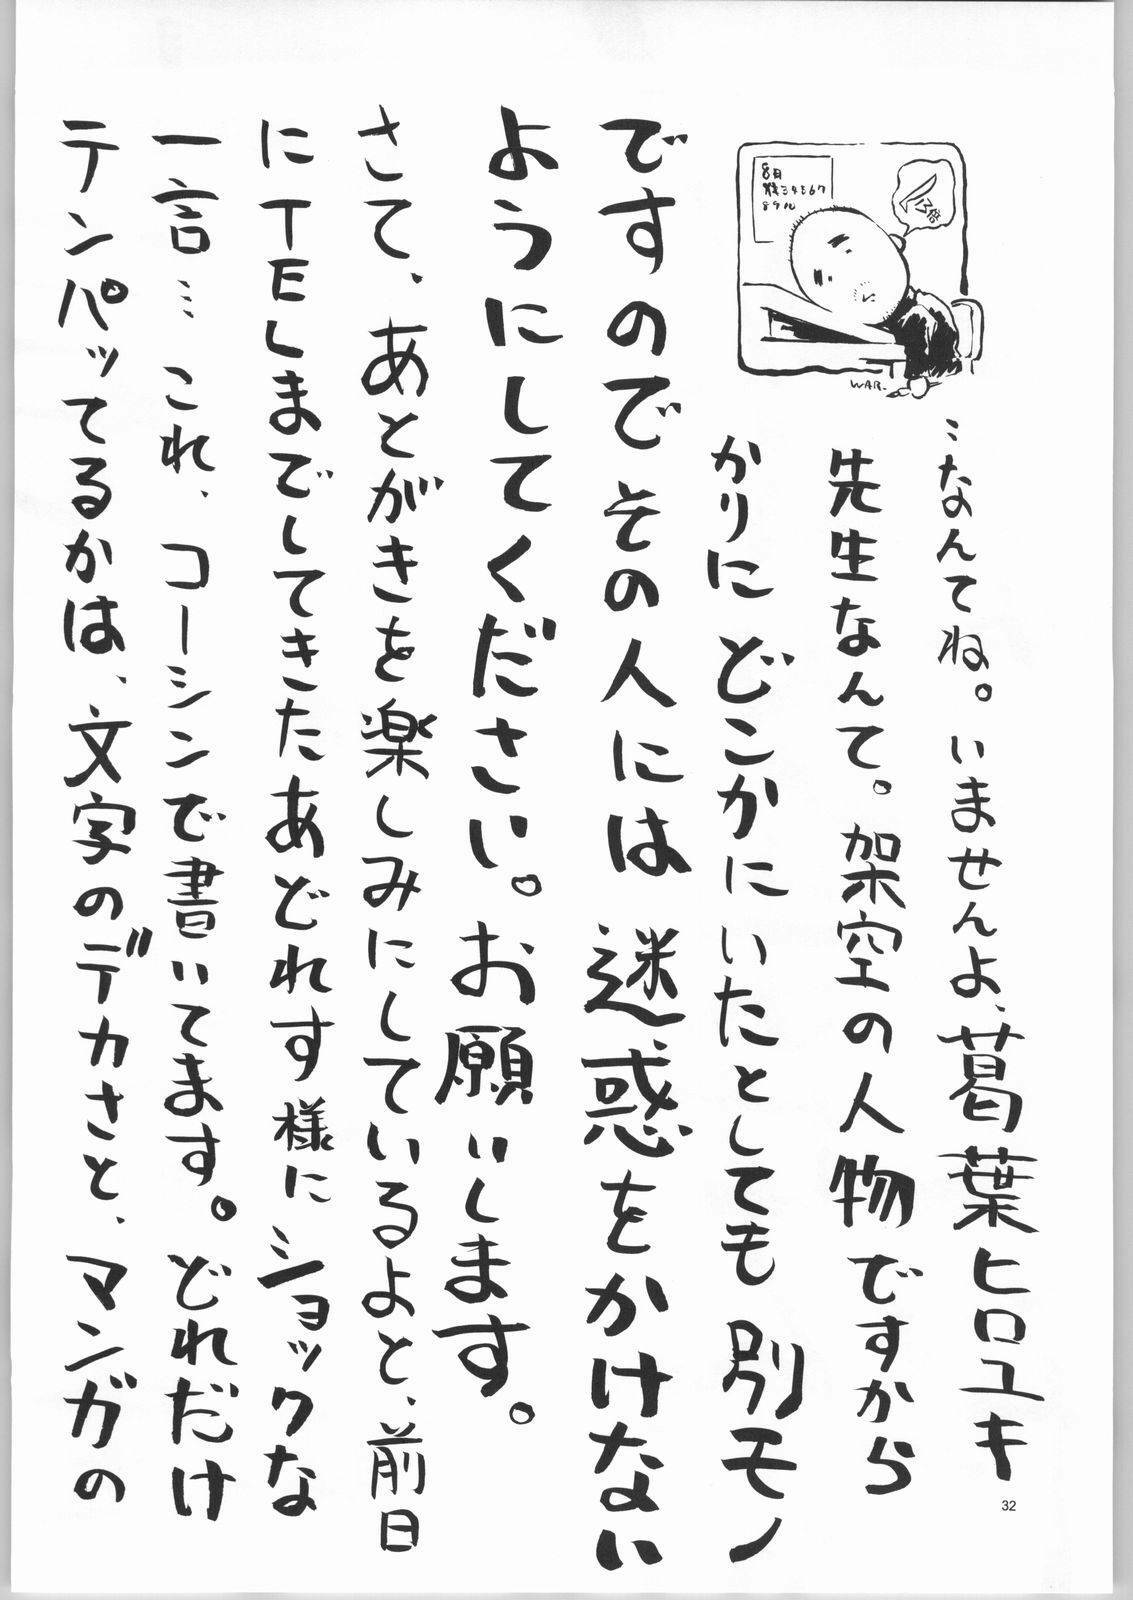 …なんてね。いませんよ、葛葉ヒロユキ
先生なんて。架空の人物ですから
かりにどこかにいたとしても別モノ
ですのでその人には迷惑をかけない
ようにしてください。お願いします。
さて、あとがきを楽しみにしているよと、前日
にTELまでしてきたあどれす様にショックな
一言… これ、コーションで書いてます。どれだけ
テンパッてるかは、文字のデカさと、マンガの
8月
WAR-
32